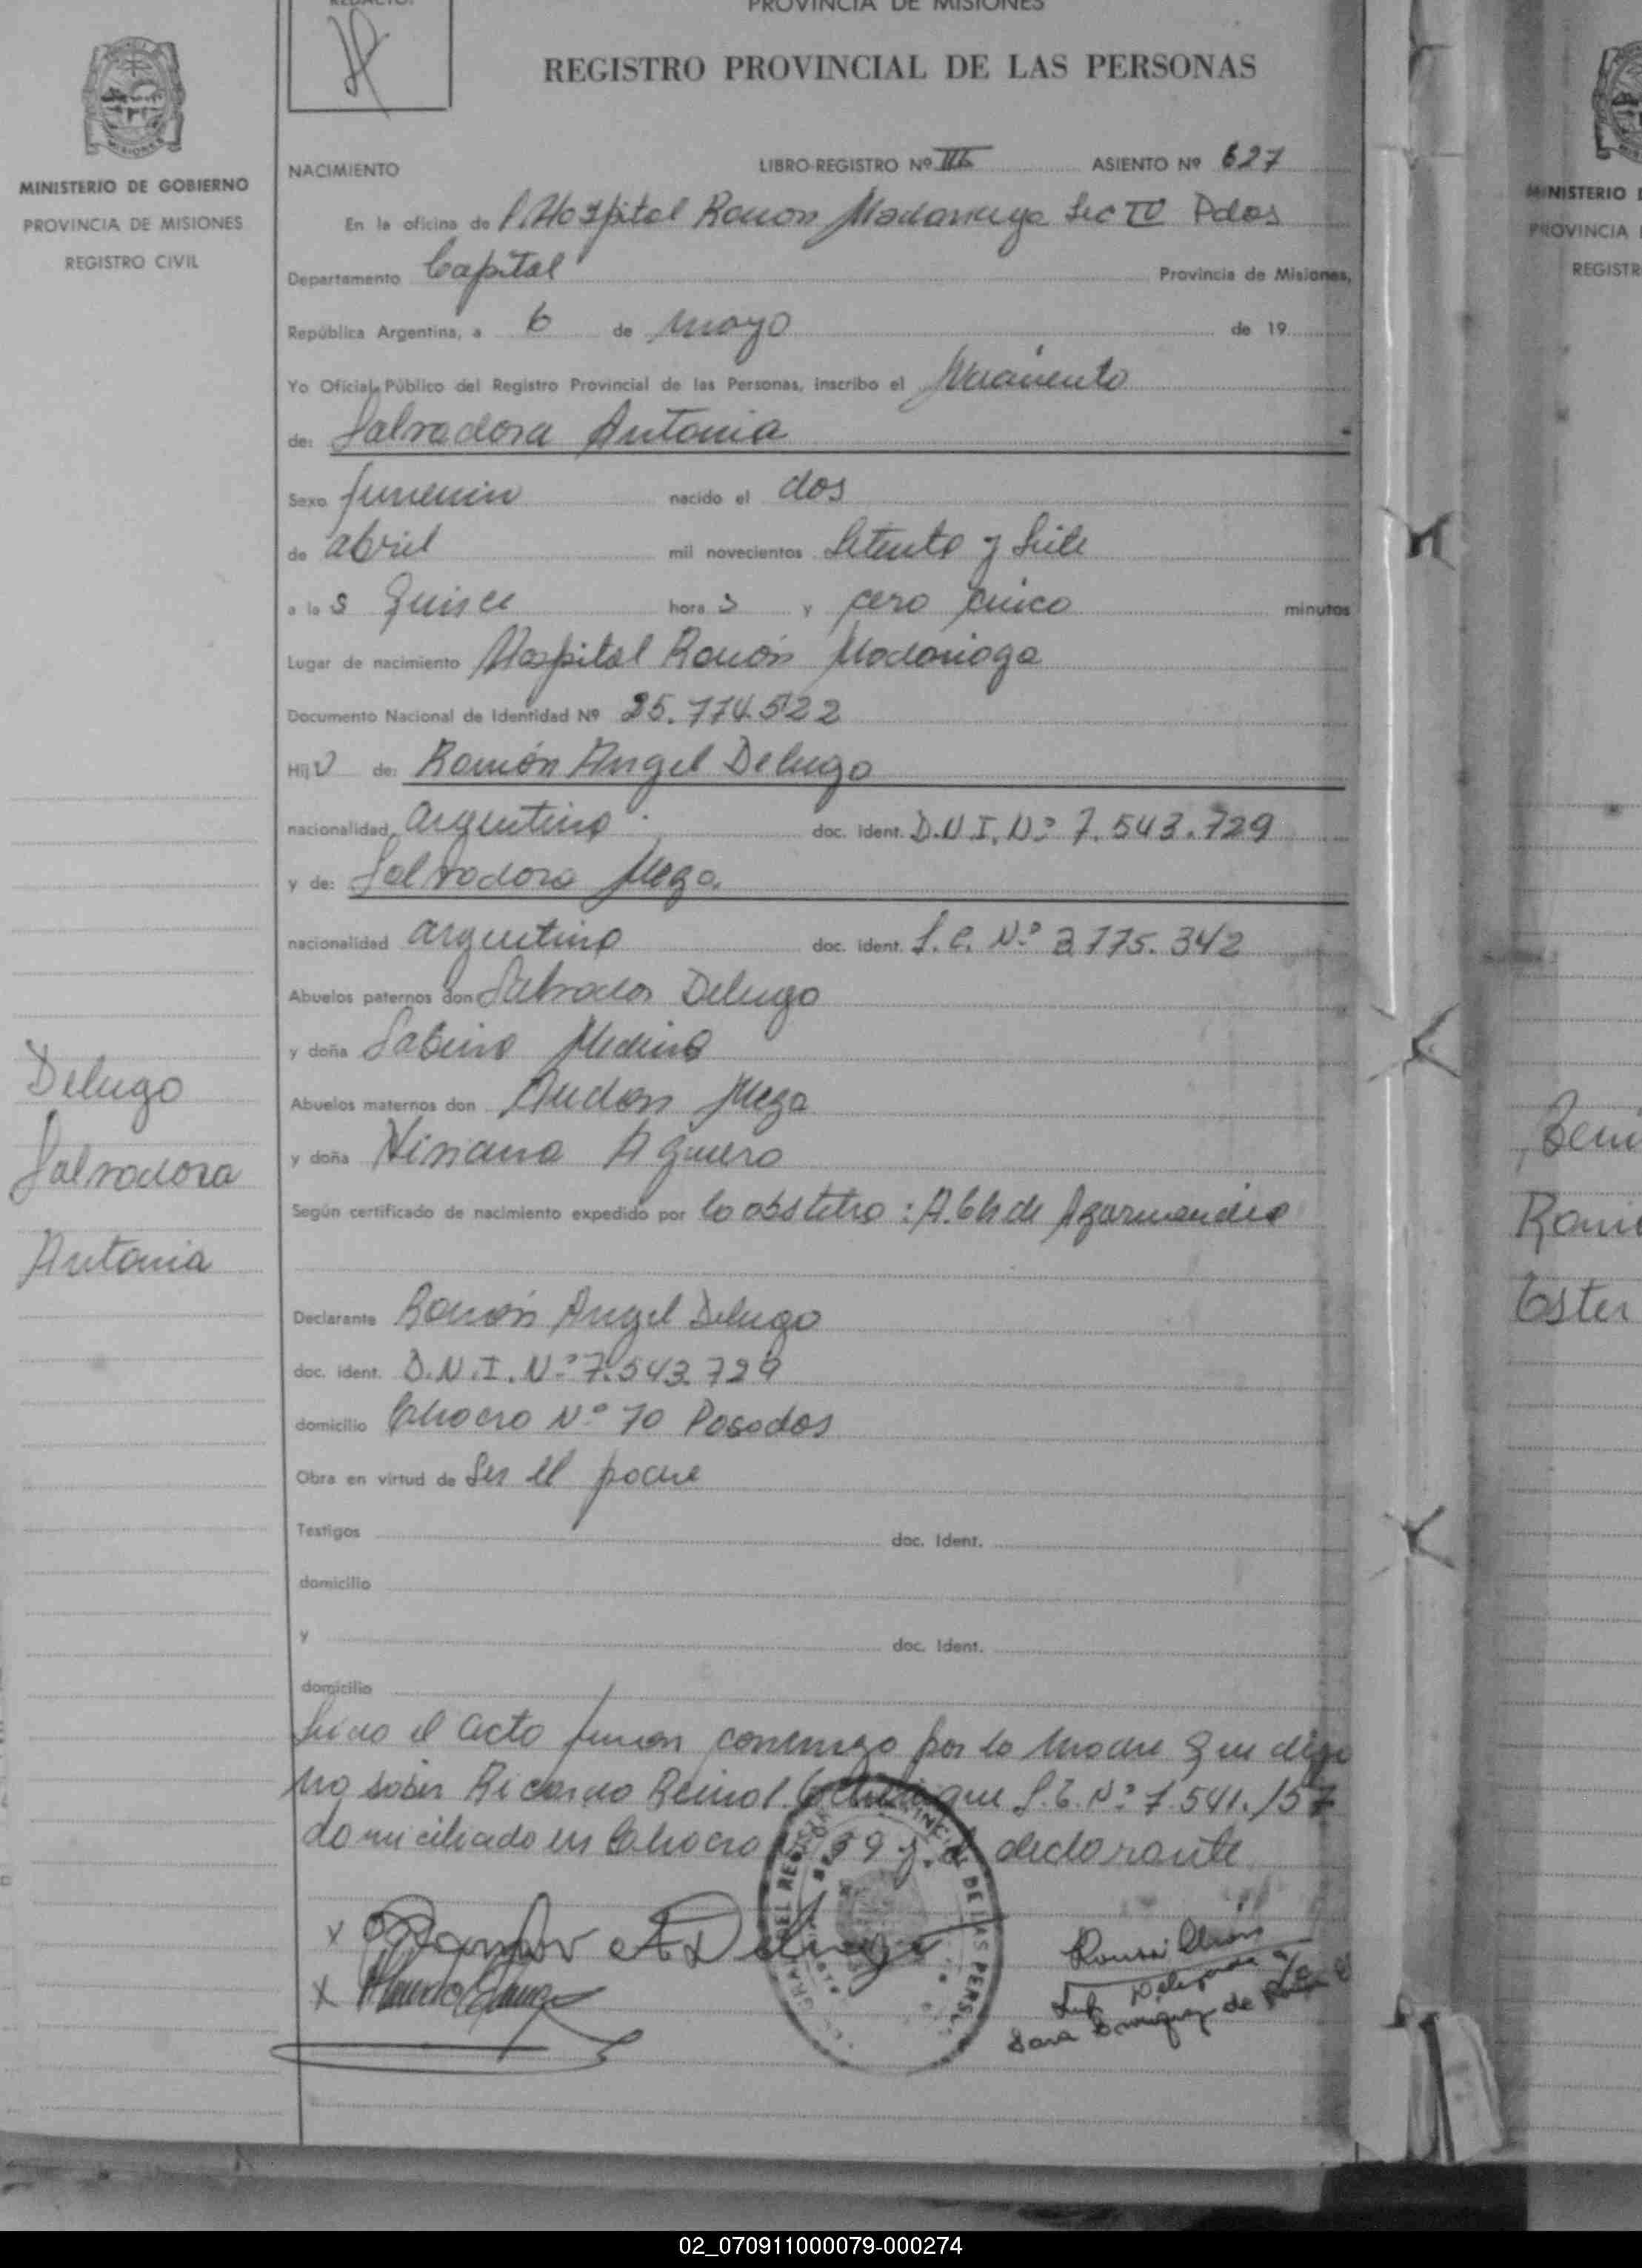 PROVINCIA DE MISIONES
REGISTRO PROVINCIAL DE LAS PERSONAS
MINISTERIO DE GOBIERNO
PROVINCIA DE MISIONES
REGISTRO CIVIL
NACIMIENTO LIBRO-REGISTRO Nº III ASIENTO Nº 627
En la oficina de Hospital Ramon Madariaga Sec IV Pdas
Departamento Capital Provincia de Misiones,
República Argentina, a 6 de mayo de 19
Yo Oficial Público del Registro Provincial de las Personas, inscribo el Nacimiento
de: Salvadora Antonia
Sexo femenin nacido el dos
de abril mil novecientos Setenta y Siete
a la s Quince hora s y cero cinco minutos
Lugar de nacimiento Hospital Ramón Madariaga
Documento Nacional de Identidad Nº 25.774.522
Hij de: Ramón Angel Delugo
nacionalidad argentina doc. ident. D.N.I. Nº 7.543.729
y de: Salvadora Meza.
nacionalidad argentina doc. ident. L.C. Nº 3.775.342
Abuelos paternos don Salvador Delugo
y doña Sabina Medina
Abuelos maternos don Audon Meza
y doña Viviana Aguero
Según certificado de nacimiento expedido por la obstetra: A. de
Declarante Ramón Angel Delugo
doc. ident. D.N.I. Nº 7.543.729
domicilio Chaco Nº 70 Posadas
Obra en virtud de Ser el padre
Testigos doc. Ident.
domicilio
y doc. Ident.
domicilio
el acto firman conmigo por la madre que dijo
no saber Ricardo Nº 7.541.157
domiciliado en Chaco 59 y el declarante
Delugo
Salvadora
Antonia
Ramon A Delugo
Sara de
MINISTERIO
PROVINCIA
REGISTR
Ester
02_070911000079-000274